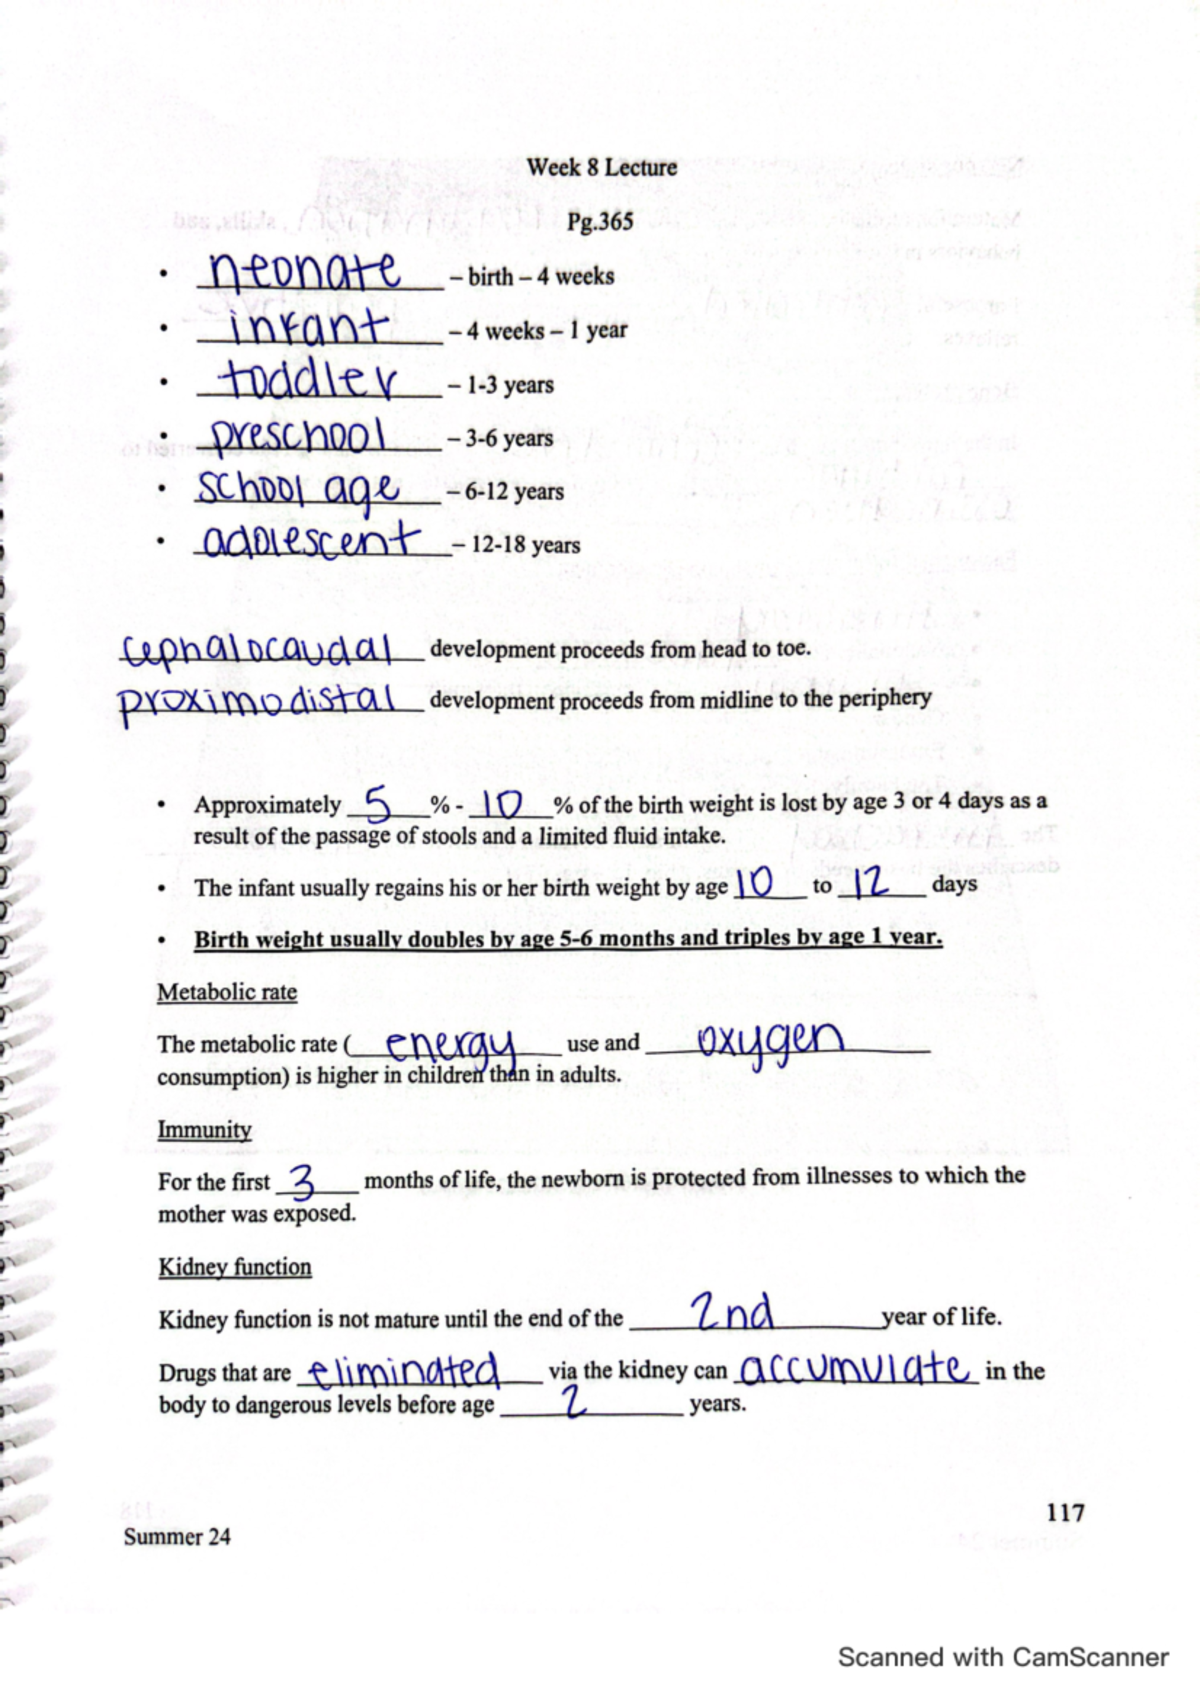 Week 8 Lecture
Pg.365
• neonate – birth – 4 weeks
• infant – 4 weeks – 1 year
• toddler – 1-3 years
• preschool – 3-6 years
• school age – 6-12 years
• adolescent – 12-18 years
cephalocaudal development proceeds from head to toe.
proximodistal development proceeds from midline to the periphery
• Approximately 5 % - 10 % of the birth weight is lost by age 3 or 4 days as a
result of the passage of stools and a limited fluid intake.
• The infant usually regains his or her birth weight by age 10 to 12 days
• Birth weight usually doubles by age 5-6 months and triples by age 1 year.
Metabolic rate
The metabolic rate ( energy use and oxygen
consumption) is higher in children than in adults.
Immunity
For the first 3 months of life, the newborn is protected from illnesses to which the
mother was exposed.
Kidney function
Kidney function is not mature until the end of the 2nd year of life.
Drugs that are eliminated via the kidney can accumulate in the
body to dangerous levels before age 2 years.
117
Summer 24
Scanned with CamScanner